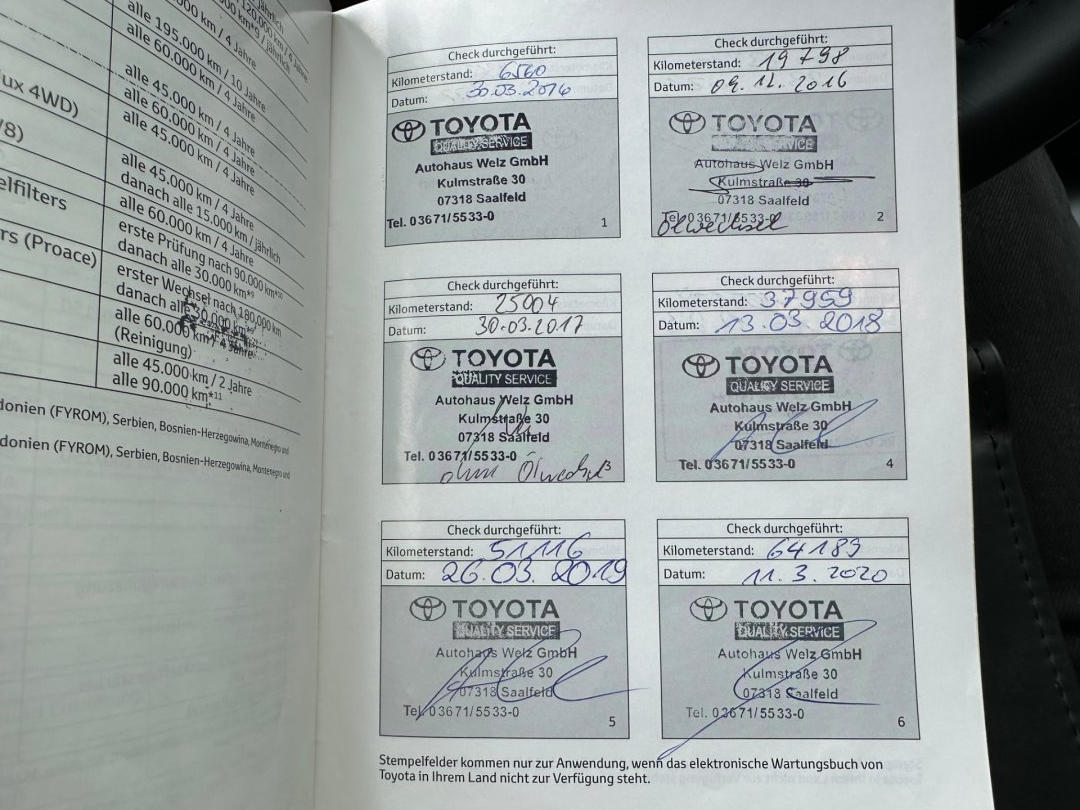 120.000 km / 4 Jahre
alle 195.000 km / 10 Jahre
alle 60.000 km / 4 Jahre
lux 4WD)
alle 45.000 km / 4 Jahre
alle 60.000 km / 4 Jahre
alle 45.000 km / 4 Jahre
elfilters
alle 45.000 km / 4 Jahre
danach alle 15.000 km / jährlich
alle 60.000 km / 4 Jahre
rs (Proace)
erste Prüfung nach 90.000 km*¹⁰
danach alle 30.000 km*⁹
erster Wechsel nach 180.000 km
danach alle 30.000 km*⁹
alle 60.000 km / 4 Jahre
(Reinigung)
alle 45.000 km / 2 Jahre
alle 90.000 km*¹¹
donien (FYROM), Serbien, Bosnien-Herzegowina, Montenegro und
donien (FYROM), Serbien, Bosnien-Herzegowina, Montenegro und
Check durchgeführt:
Kilometerstand: 6560
Datum: 30.03.2016
TOYOTA
QUALITY SERVICE
Autohaus Welz GmbH
Kulmstraße 30
07318 Saalfeld
Tel. 03671/5533-0
1
Check durchgeführt:
Kilometerstand: 19798
Datum: 09.12.2016
TOYOTA
QUALITY SERVICE
Autohaus Welz GmbH
Kulmstraße 30
07318 Saalfeld
Tel. 03671/5533-0
Ölwechsel
2
Check durchgeführt:
Kilometerstand: 25004
Datum: 30.03.2017
TOYOTA
QUALITY SERVICE
Autohaus Welz GmbH
Kulmstraße 30
07318 Saalfeld
Tel. 03671/5533-0
ohne Ölwechsel
3
Check durchgeführt:
Kilometerstand: 37959
Datum: 13.03.2018
TOYOTA
QUALITY SERVICE
Autohaus Welz GmbH
Kulmstraße 30
07318 Saalfeld
Tel. 03671/5533-0
4
Check durchgeführt:
Kilometerstand: 51116
Datum: 26.03.2019
TOYOTA
QUALITY SERVICE
Autohaus Welz GmbH
Kulmstraße 30
07318 Saalfeld
Tel. 03671/5533-0
5
Check durchgeführt:
Kilometerstand: 64189
Datum: 11.3.2020
TOYOTA
QUALITY SERVICE
Autohaus Welz GmbH
Kulmstraße 30
07318 Saalfeld
Tel. 03671/5533-0
6
Stempelfelder kommen nur zur Anwendung, wenn das elektronische Wartungsbuch von
Toyota in Ihrem Land nicht zur Verfügung steht.